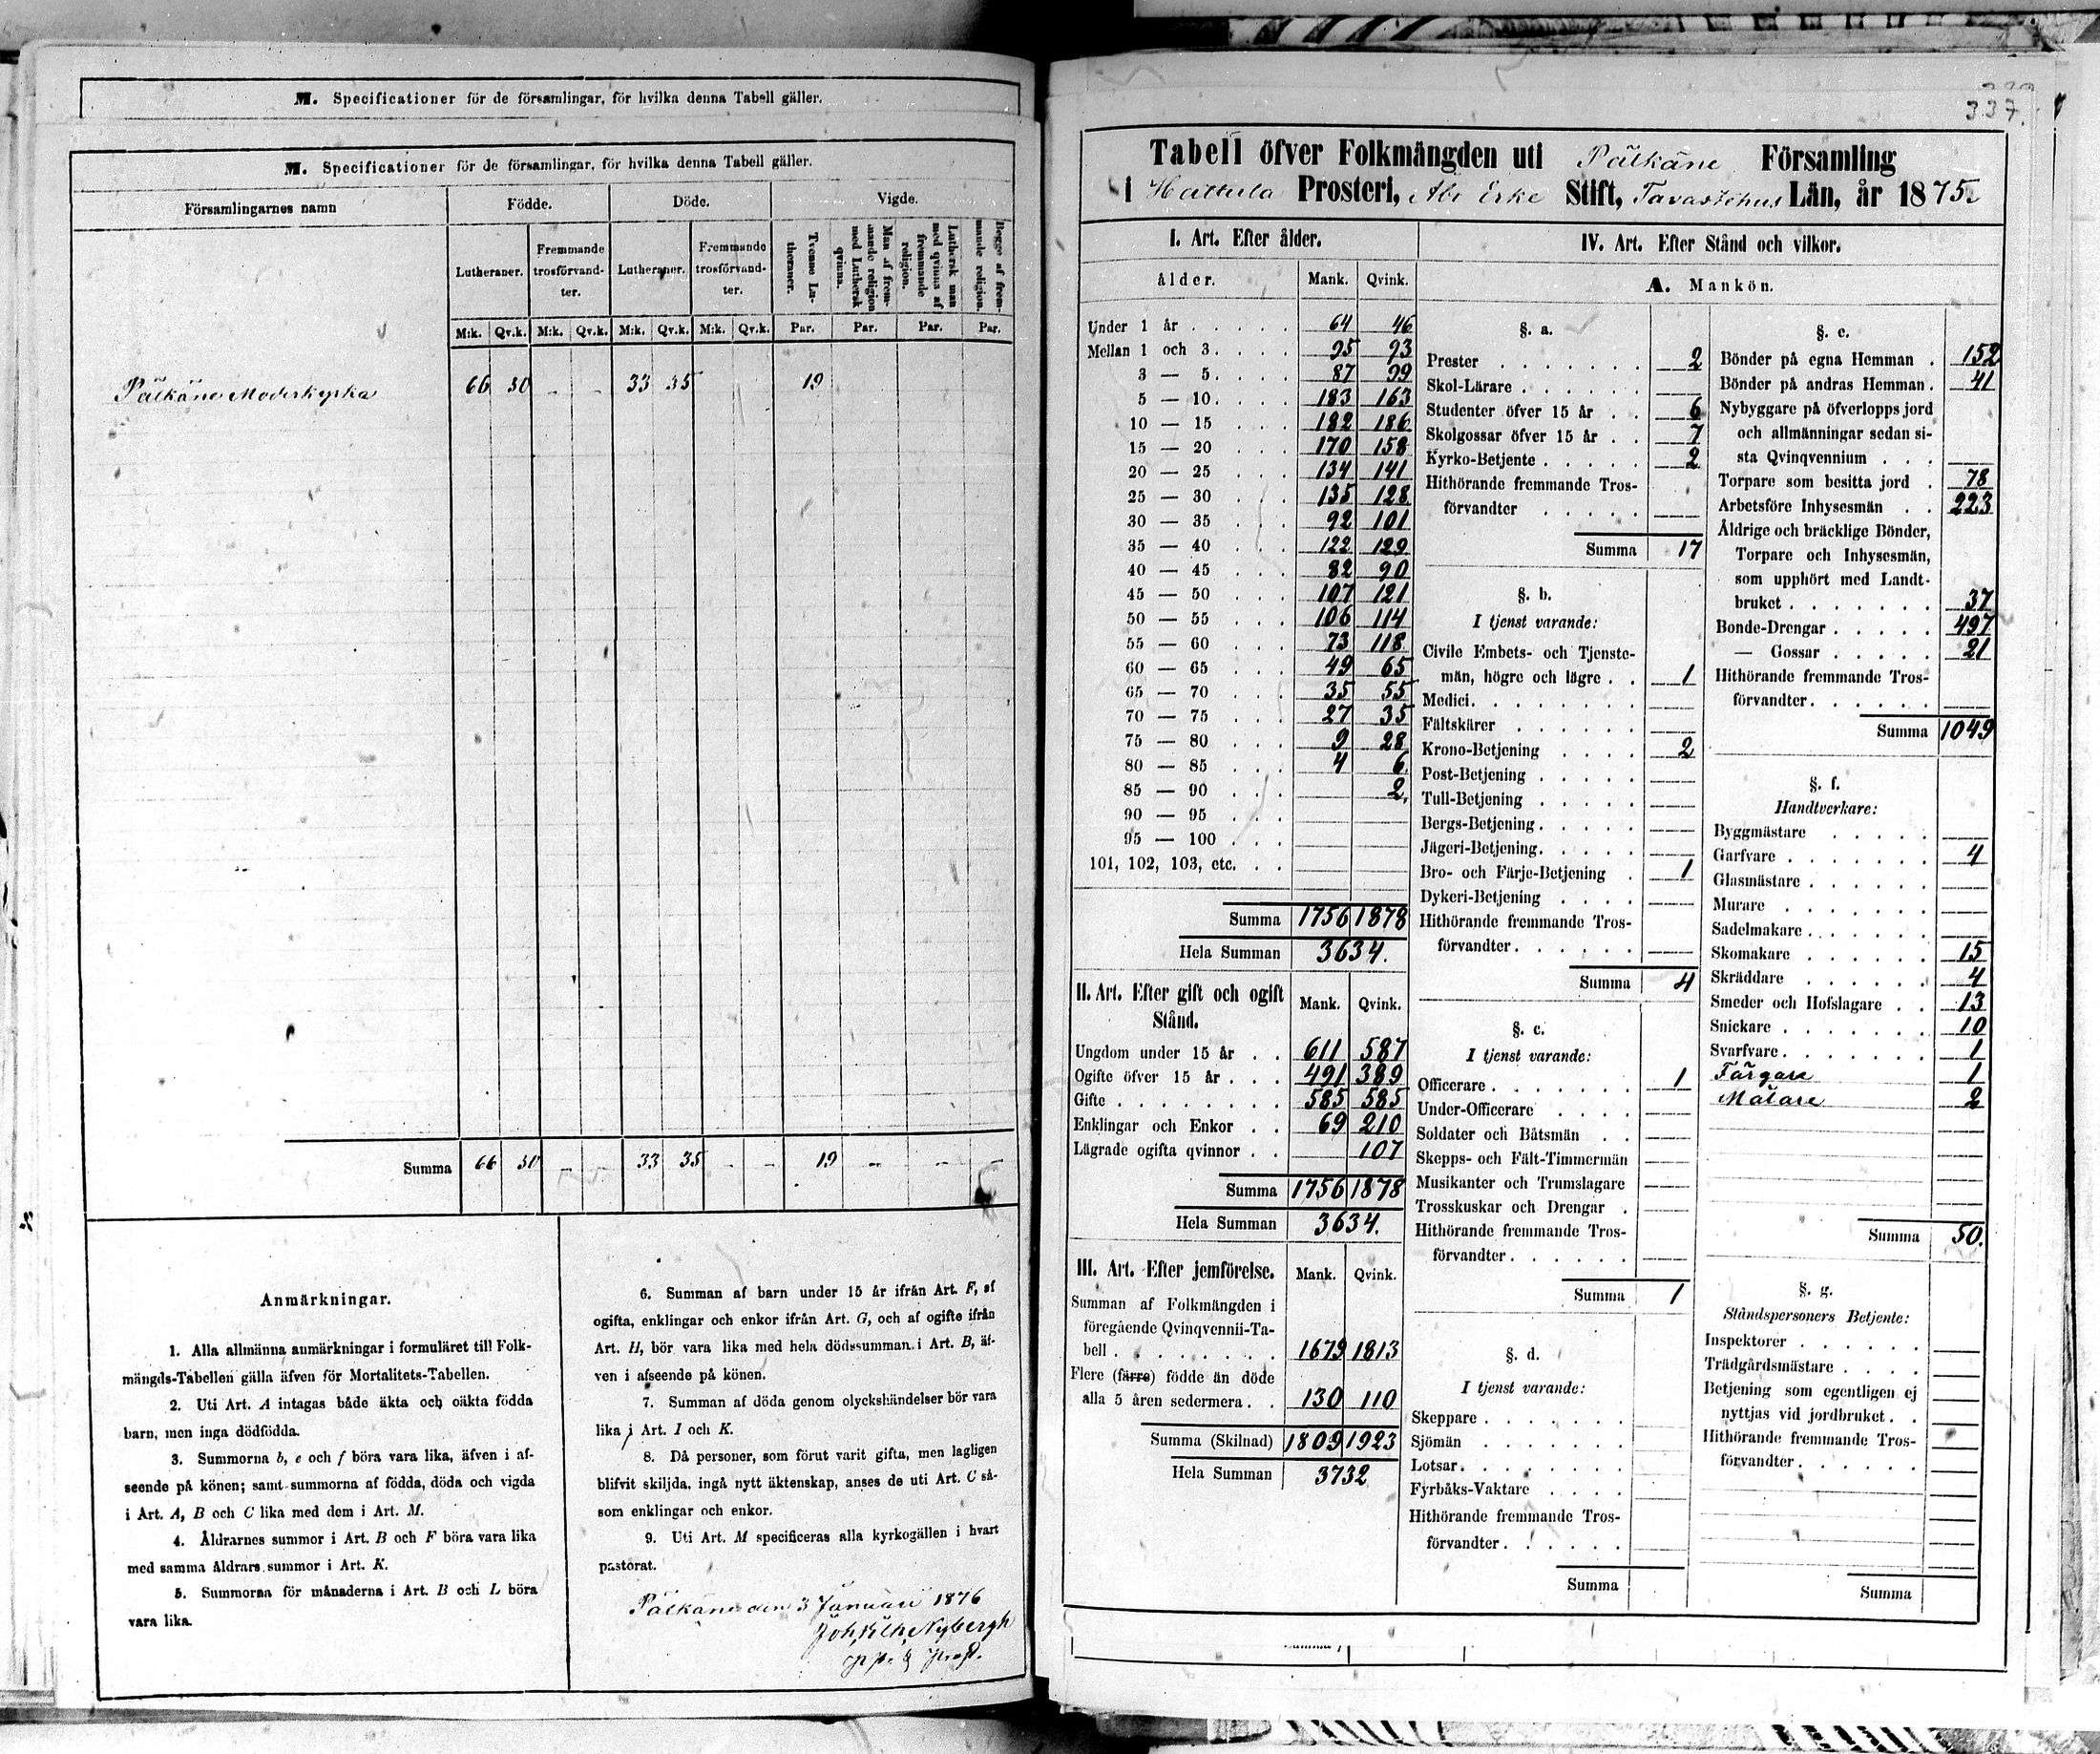 M. Specificationer för de församlingar, för hvilka denna Tabell gäller.
M. Specificationer för de församlingar, för hvilka denna Tabell gäller.
Församlingarnes namn Födde. Döde. Vigde.
Lutheraner. Fremmande trosförvandter. Lutheraner. Fremmande trosförvandter. Tvenne Lutheraner. Man af fremmande religion med Luthersk qvinna. Luthersk man med qvinna af fremmande religion. Begge af fremmande religion.
M:k. Qv.k. M:k. Qv.k. M:k. Qv.k. M:k. Qv.k. Par. Par. Par. Par.
Pälkäne Moderkyrka 66 50 - - 33 35 19
Summa 66 50 - - 33 35 - - 19 - - -
Anmärkningar.
1. Alla allmänna anmärkningar i formuläret till Folk-
mängds-Tabellen gälla äfven för Mortalitets-Tabellen.
2. Uti Art. A intagas både äkta och oäkta födda
barn, men inga dödfödda.
3. Summorna b, e och f böra vara lika, äfven i af-
seende på könen; samt summorna af födda, döda och vigda
i Art. A, B och C lika med dem i Art. M.
4. Åldrarnes summor i Art. B och F böra vara lika
med samma åldrars summor i Art. K.
5. Summorna för månaderna i Art. B och L böra
vara lika.
6. Summan af barn under 15 år ifrån Art. F, af
ogifta, enklingar och enkor ifrån Art. G, och af ogifte ifrån
Art. H, bör vara lika med hela dödssumman i Art. B, äf-
ven i afseende på könen.
7. Summan af döda genom olyckshändelser bör vara
lika i Art. I och K.
8. Då personer, som förut varit gifta, men lagligen
blifvit skiljda, ingå nytt äktenskap, anses de uti Art. C så-
som enklingar och enkor.
9. Uti Art. M specificeras alla kyrkogällen i hvart
pastorat.
Pälkäne den 3 Januari 1876
Nybergh
337.
Tabell öfver Folkmängden uti Pälkäne Församling
i Hattula Prosteri, Åbo Erke Stift, Tavastehus Län, år 1875.
I. Art. Efter ålder.
ålder. Mank. Qvink.
Under 1 år . . . . . 64 46
Mellan 1 och 3. . . . 95 93
3 — 5. . . . 87 99
5 — 10. . . . 183 163
10 — 15 . . . 182 186
15 — 20 . . . 170 158
20 — 25 . . . 134 141
25 — 30 . . . 135 128
30 — 35 . . . 92 101
35 — 40 . . . 122 129
40 — 45 . . . 82 90
45 — 50 . . . 107 121
50 — 55 . . . 106 114
55 — 60 . . . 73 118
60 — 65 . . . 49 65
65 — 70 . . . 35 55
70 — 75 . . . 27 35
75 — 80 . . . 9 28
80 — 85 . . . 4 6
85 — 90 . . . 2.
90 — 95 . . .
95 — 100 . . .
101, 102, 103, etc. . .
Summa 1756 1878
Hela Summan 3634.
II. Art. Efter gift och ogift Stånd. Mank. Qvink.
Ungdom under 15 år . . 611 587
Ogifte öfver 15 år . . . 491 389
Gifte . . . . . . . . 585 585
Enklingar och Enkor . . 69 210
Lägrade ogifta qvinnor . . 107
Summa 1756 1878
Hela Summan 3634.
III. Art. Efter jemförelse. Mank. Qvink.
Summan af Folkmängden i
föregående Qvinqvennii-Ta-
bell . . . . . . . . 1679 1813
Flere (färre) födde än döde
alla 5 åren sedermera . . 130 110
Summa (Skilnad) 1809 1923
Hela Summan 3732
IV. Art. Efter Stånd och vilkor.
A. Mankön.
§. a.
Prester . . . . . . . 2
Skol-Lärare . . . . . .
Studenter öfver 15 år . . 6
Skolgossar öfver 15 år . . 7
Kyrko-Betjente . . . . . 2
Hithörande fremmande Tros-
förvandter . . . . .
Summa 17
§. b.
I tjenst varande:
Civile Embets- och Tjenste-
män, högre och lägre . . 1
Medici. . . . . . . .
Fältskärer . . . . . .
Krono-Betjening . . . . 2
Post-Betjening . . . . .
Tull-Betjening . . . . .
Bergs-Betjening . . . . .
Jägeri-Betjening. . . . .
Bro- och Färje-Betjening . 1
Dykeri-Betjening . . . .
Hithörande fremmande Tros-
förvandter . . . . . .
Summa 4
§. c.
I tjenst varande:
Officerare . . . . . . . 1
Under-Officerare . . . .
Soldater och Båtsmän . .
Skepps- och Fält-Timmermän
Musikanter och Trumslagare
Trosskuskar och Drengar .
Hithörande fremmande Tros-
förvandter . . . . . .
Summa 1
§. d.
I tjenst varande:
Skeppare . . . . . . .
Sjömän . . . . . . .
Lotsar . . . . . . . .
Fyrbåks-Vaktare . . . .
Hithörande fremmande Tros-
förvandter . . . . . .
Summa
§. e.
Bönder på egna Hemman . 152
Bönder på andras Hemman . 41
Nybyggare på öfverlopps jord
och allmänningar sedan si-
sta Qvinqvennium . . .
Torpare som besitta jord . 78
Arbetsföre Inhysesmän . . 223
Åldrige och bräcklige Bönder,
Torpare och Inhysesmän,
som upphört med Landt-
bruket . . . . . . . 37
Bonde-Drengar . . . . . 497
— Gossar . . . . . 21
Hithörande fremmande Tros-
förvandter . . . . . .
Summa 1049
§. f.
Handtverkare:
Byggmästare . . . . .
Garfvare . . . . . . . 4
Glasmästare . . . . . .
Murare . . . . . . .
Sadelmakare . . . . . .
Skomakare . . . . . . 15
Skräddare . . . . . . 4
Smeder och Hofslagare . . 13
Snickare . . . . . . . 10
Svarfvare . . . . . . . 1
Färgare 1
Målare 2
Summa 50.
§. g.
Ståndspersoners Betjente:
Inspektorer . . . . . .
Trädgårdsmästare . . . .
Betjening som egentligen ej
nyttjas vid jordbruket . .
Hithörande fremmande Tros-
förvandter . . . . . .
Summa